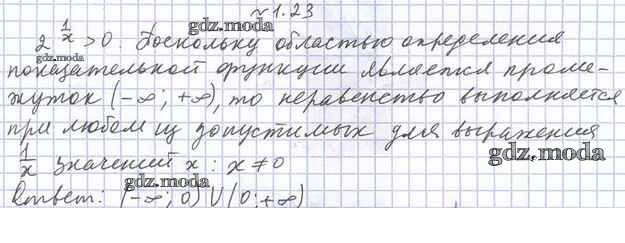 № 1.23
2^(1/x) > 0. Поскольку областью определения
показательной функции является проме-
жуток (-∞; +∞), то неравенство выполняется
при любом из допустимых для выражения
1/x значений x : x ≠ 0
Ответ: (-∞; 0) U (0; +∞)
gdz.moda
gdz.moda
gdz.moda
gdz.moda
gdz.moda